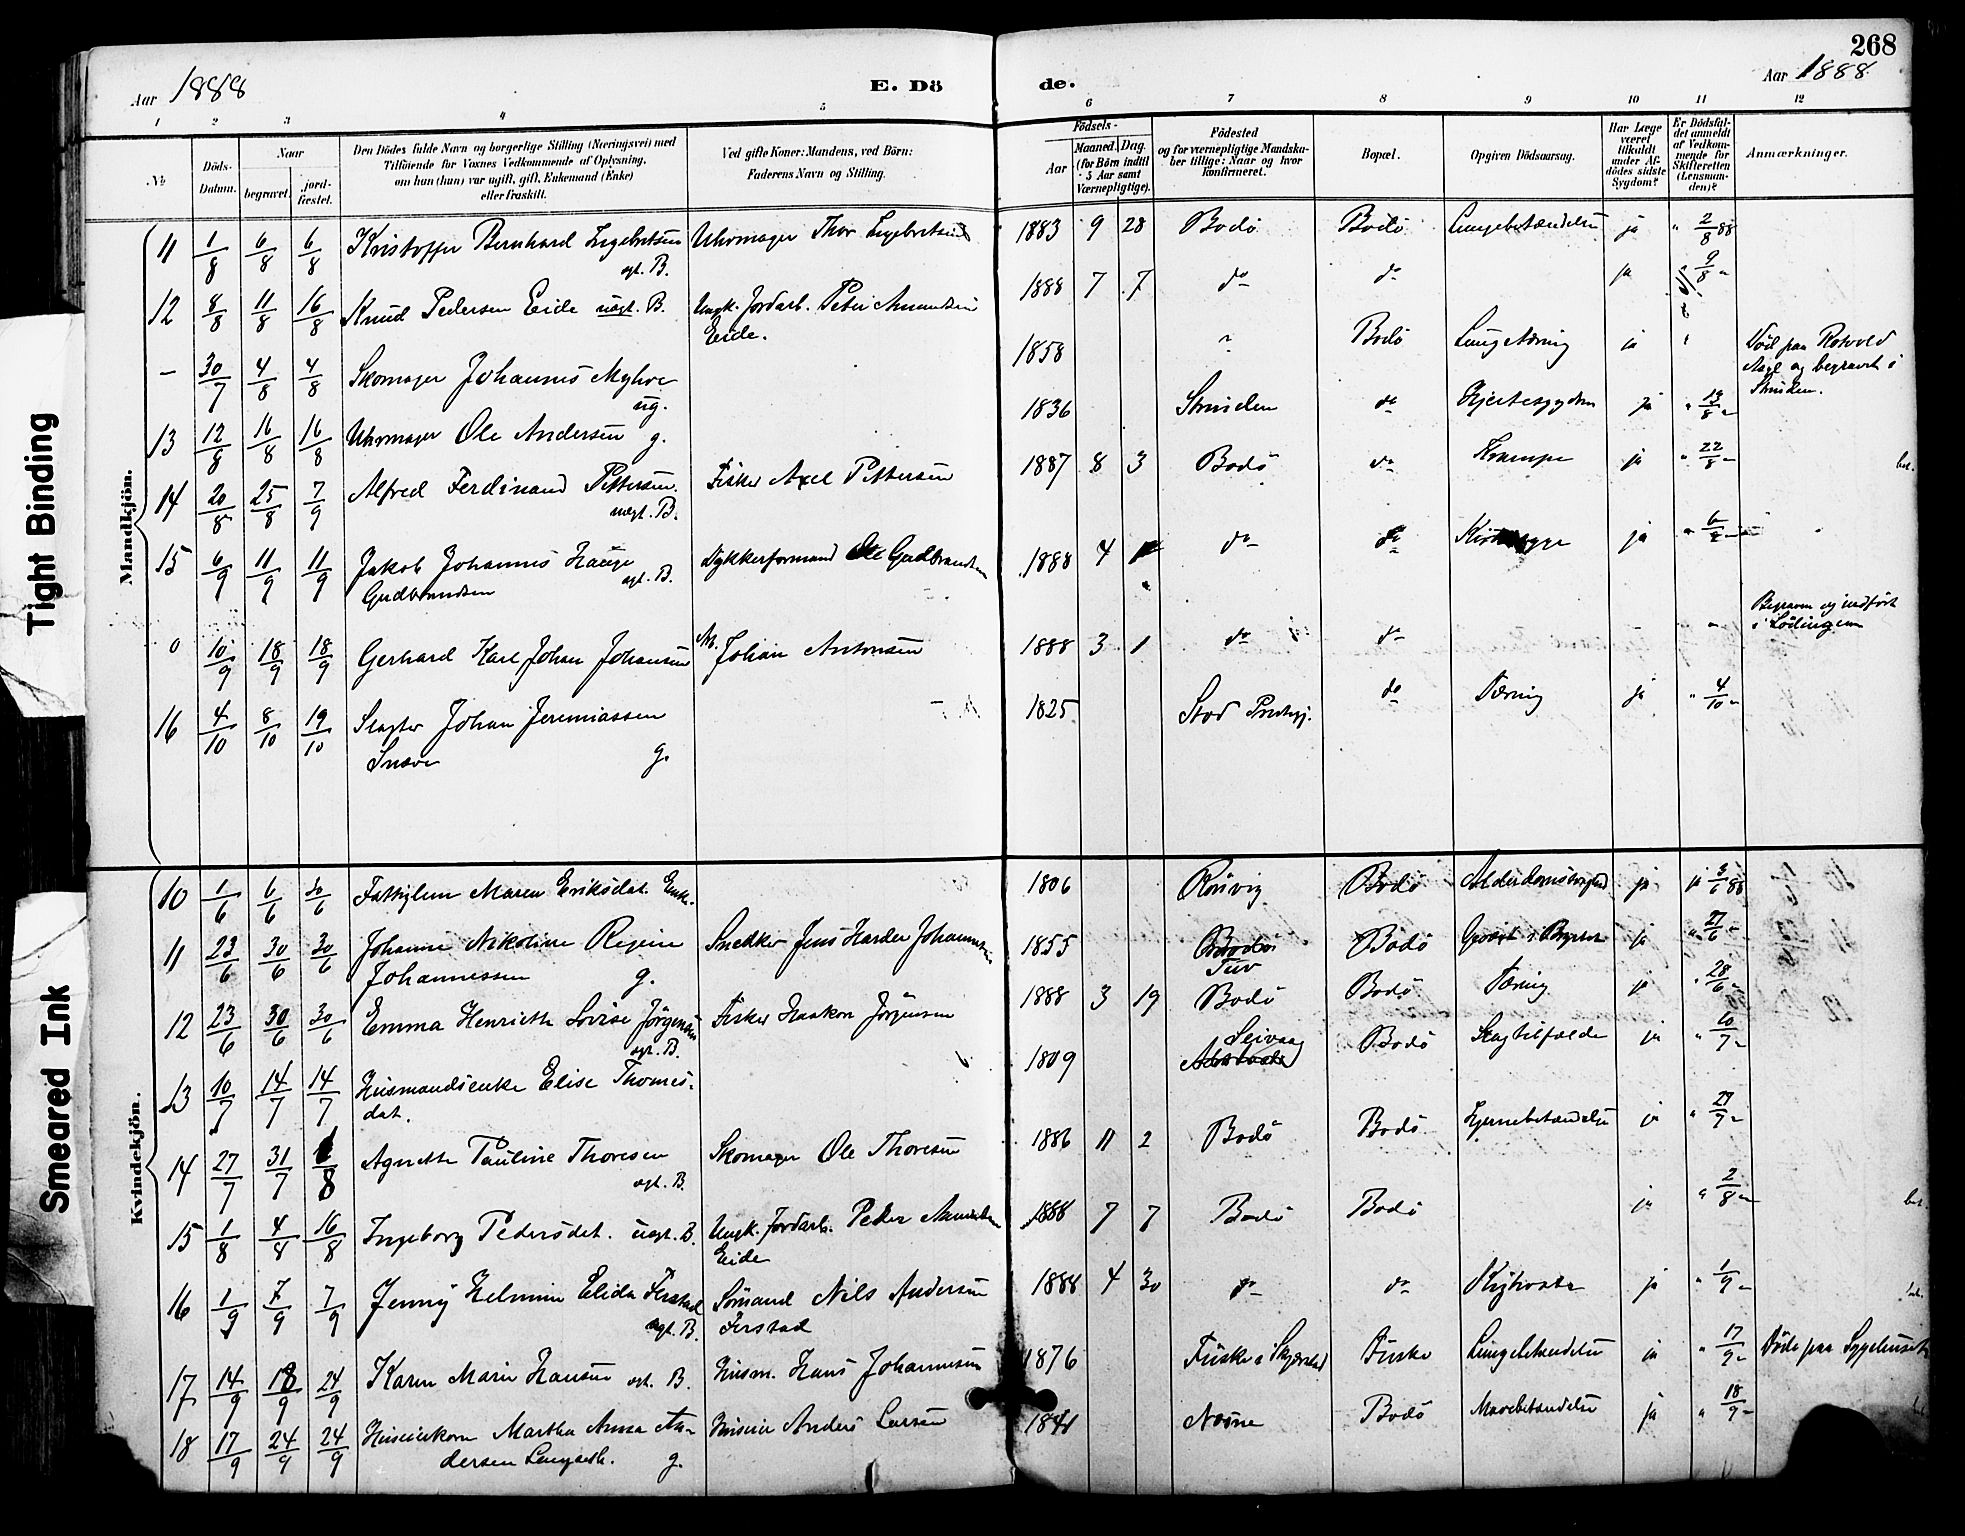 268
Aar 1888
E. Dö
de.
Aar 1888.
1 2 3 4 5 6 7 8 9 10 11 12
No
Döds-
Datum.
Naar
begravet.
jord-
fæstet.
Den Dödes fulde Navn og borgerlige Stilling (Næringsvei) med
Tilföiende for Voxnes Vedkommende af Oplysning,
om han (hun) var ugift, gift, Enkemand (Enke)
eller fraskilt.
Ved gifte Koner: Mandens, ved Börn:
Faderens Navn og Stilling.
Födsels-
Aar
Maaned. Dag.
(for Börn indtil
5 Aar samt
Værnepligtige).
Födested
og for værnepligtige Mandska-
ber tillige: Naar og hvor
konfirmeret.
Bopæl.
Opgiven Dödsaarsag.
Har Læge
været
tilkaldt
under Af-
dödes sidste
Sygdom?
Er Dödsfal-
det anmeldt
af Vedkom-
mende for
Skifteretten
(Lensman-
den)?
Anmærkninger.
Mandkjön.
11 1/8 6/8 6/8 Kristoffer Bernhard Ingebretsen Uhrmager Thor Ingebretsen 1883 9 28 Bodö Bodö Lungebetændelse ja " 2/8 88
ægt. B.
12 8/8 11/8 16/8 Knud Pedersen Eide uægt. B. Ungk. Jordarb. Peter Amundsen 1888 7 7 do do ja 9/8 "
Eide.
- 30/7 4/8 4/8 Skomager Johannes Myhre 1858 " Bodö Lungetæring ja " Död paa Rotvold
ug. Asyl og begravet i
Strinden.
13 12/8 16/8 16/8 Uhrmager Ole Andersen g. 1836 Strinden do Hjertesygdom ja " 13/8 "
14 20/8 25/8 7/9 Alfred Ferdinand Pettersen Fisker Axel Pettersen 1887 8 3 Bodö do Krampe ja " 22/8 "
uægt. B.
15 6/9 11/9 11/9 Jakob Johannes Hauge Dykkerformand Ole Gudbrandsen 1888 4 do do ja "
Gudbrandsen ægt. B.
0 10/9 18/9 18/9 Gerhard Karl Johan Johansen Johan Antonsen 1888 3 1 do do - " Begraven og indfört
i Lödingen
16 4/10 8/10 19/10 Slagter Johan Jeremiassen 1825 Stod Prstgj. do Tæring ja " 4/10 "
Snæve g.
Kvindekjön.
10 1/6 6/6 30/6 Fattiglem Maren Eriksdat. Enke. 1806 Rösvig Bodö Alderdomssvaghed ja ja 3/6 88
11 23/6 30/6 30/6 Johanne Nikoline Regine Snedker Jens Harder Johannesen 1855 Bodö Bodö ja " 27/6 "
Johannessen g. Tuv
12 23/6 30/6 30/6 Emma Henriette Lovise Jörgensen Fisker Haakon Jörgensen 1888 3 19 Bodö Bodö Tæring ja " 28/6 "
ægt. B.
13 10/7 14/7 14/7 Husmandsenke Elise Thomes- 1809 Seivaag Bodö Slagtilfælde ja " 10/7 "
dat.
14 27/7 31/7 1/8 Agnethe Pauline Thoresen Skomager Ole Thoresen 1886 11 2 Bodö Bodö Hjernebetændelse ja " 27/7 "
ægt. B.
15 1/8 4/8 16/8 Ingeborg Pedersdat. uægt. B. Ungk. Jordarb. Peder Amundsen 1888 7 7 Bodö Bodö ja " 2/8 "
Eide
16 1/9 7/9 7/9 Jenny Helmine Elida Ferstad Sömand Nils Andersen 1888 4 30 do do Kighoste ja " 1/9 "
ægt. B. Ferstad
17 14/9 18/9 24/9 Karen Marie Hansen ægt. B. Husm. Hans Johannesen 1876 Fuske i Skjerstad Fuske Lungebetændelse ja " 17/9 " Döde paa Sygehuset
18 17/9 24/9 24/9 Martha Anna An- Anders Larsen 1841 Næsne Bodö Mavebetændelse ja " 18/9 "
dersen g.
Tight Binding
Smeared Ink